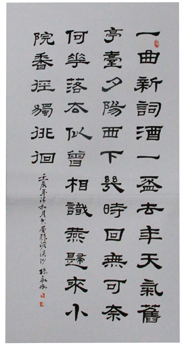 一曲新詞酒一盃去年天氣舊
亭臺夕陽西下幾時回無可奈
何華落去似曾相識燕歸來小
院香徑獨徘徊